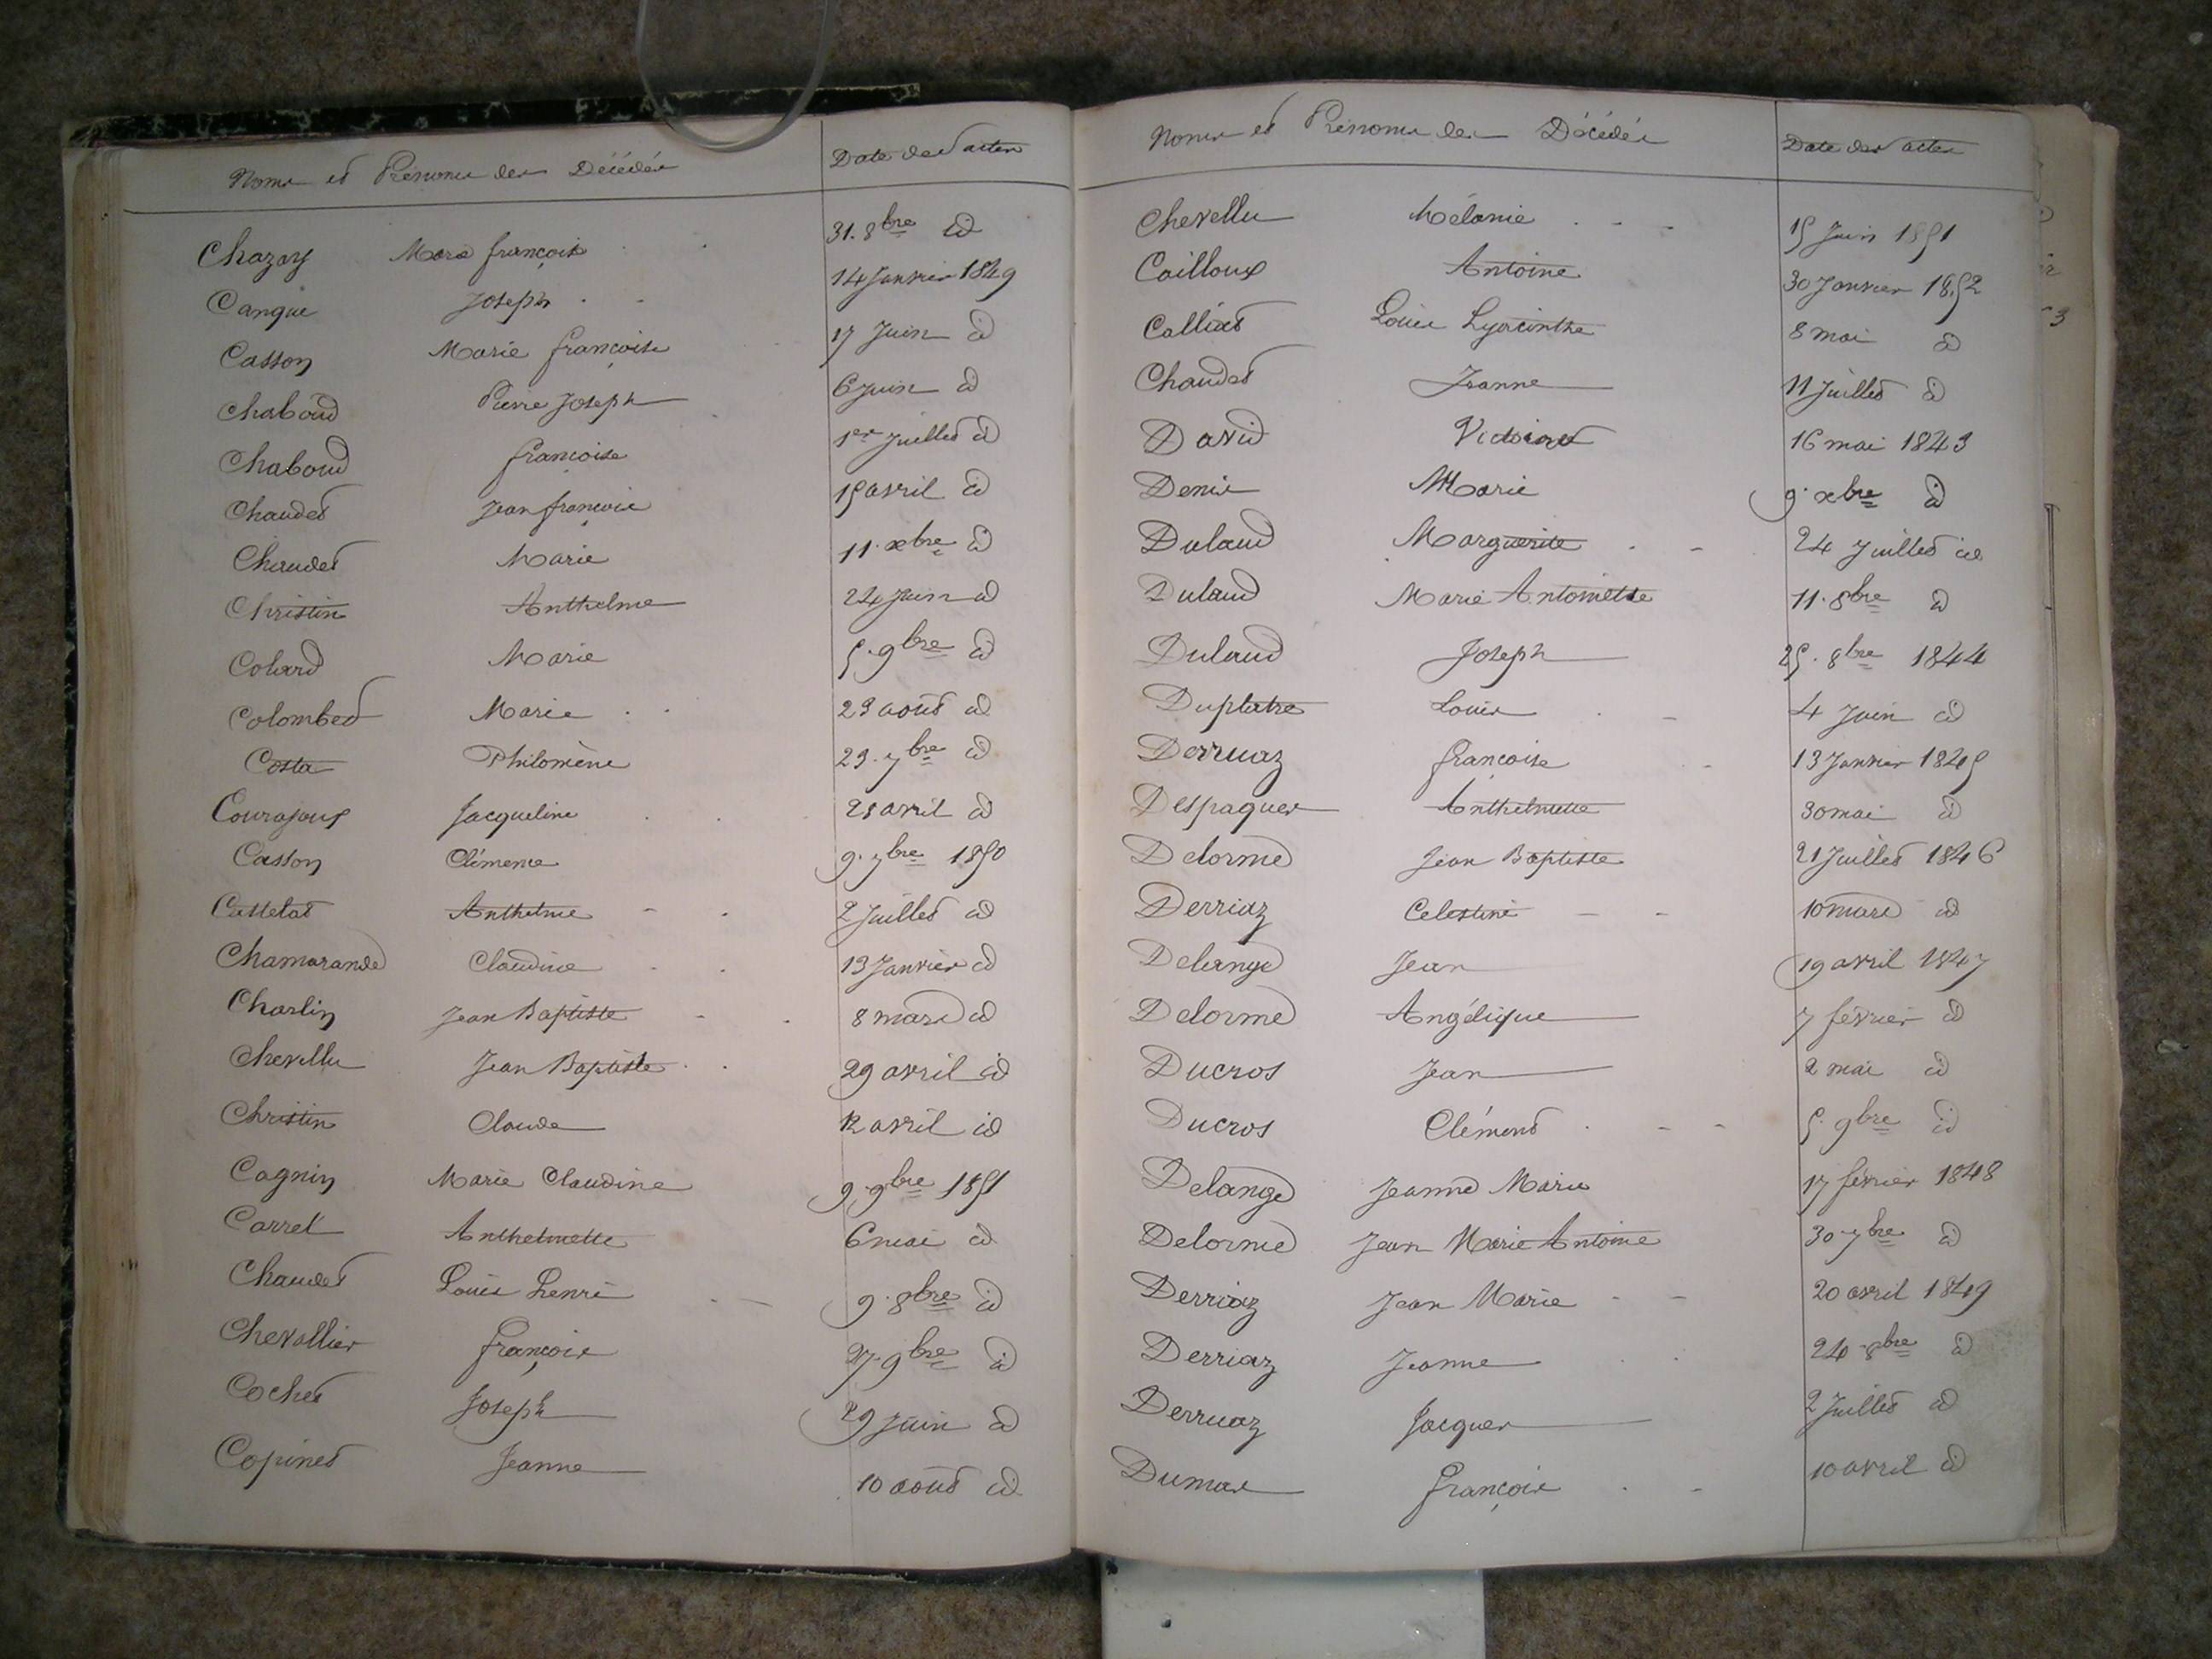 Noms et Prénoms des Décédés Date des actes
Chazay Marie françoise 31. 8bre id
Cangue Joseph 14 Janvier 1849
Casson Marie françoise 17 Juin id
Chaboud Pierre Joseph 6 Juin id
Chaboud françoise 1er Juillet id
Chaudet Jean françois 15 avril id
Chaudet Marie 11. xbre id
Christin Anthelme 24 Juin id
Colard Marie 5. 9bre id
Colombet Marie 23 août id
Costa Philomène 23. 7bre id
Courajoux Jacqueline 21 avril id
Casson Clémence 9. 7bre 1850
Castelat Anthelme 2 Juillet id
Chamarande Claudine 13 Janvier id
Charlin Jean Baptiste 8 mars id
Chevellu Jean Baptiste 29 avril id
Christin Claude 12 avril id
Cagnin Marie Claudine 9. 9bre 1851
Carrel Anthelmette 6 mai id
Chaudet Louis henri 9. 8bre id
Chevallier françois 27. 9bre id
Cochet Joseph 29 Juin id
Copinet Jeanne 10 août id
Noms et Prénoms des Décédés Date des actes
Chevellu Mélanie 15 Juin 1851
Cailloux Antoine 30 Janvier 1852
Callixt Louis hyacinthe 8 mai id
Chaudet Jeanne 11 Juillet id
David Victoire 16 mai 1843
Denis Marie 9. xbre id
Dulaud Marguerite 24 Juillet id
Dulaud Marie Antoinette 11. 8bre id
Dulaud Joseph 25. 8bre 1844
Duplatre Louis 4 Juin id
Derruaz françoise 13 Janvier 1845
Despaquer Anthelmette 30 mai id
Delorme Jean Baptiste 21 Juillet 1846
Derriaz Celestine 10 mars id
Delange Jean 19 avril 1847
Delorme Angélique 7 février id
Ducros Jean 2 mai id
Ducros Clément 5. 9bre id
Delange Jeanne Marie 17 février 1848
Delorme Jean Marie Antoine 30 7bre id
Derriaz Jean Marie 20 avril 1849
Derriaz Jeanne 24 8bre id
Derruaz Jacques 2 Juillet id
Dumas françois 10 avril id